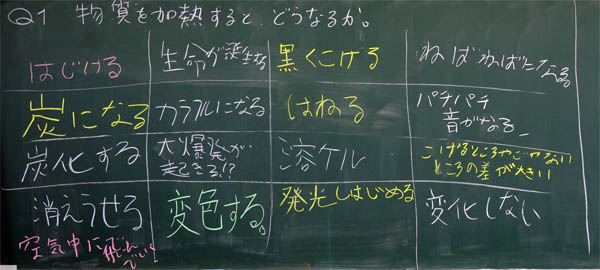 Q1 物質を加熱すると、どうなるか。
はじける
生命が誕生する
黒くこげる
ねばねばになる。
炭になる
カラフルになる
はねる
パチパチ
音がなる
炭化する
大爆発が
起きる!?
溶ケル
こげるところやこげない
ところの差が大きい
消えうせる
空気中に飛んでいく
変色する。
発光しはじめる
変化しない